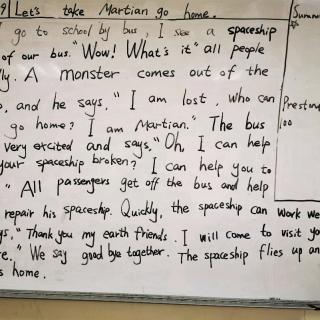 9 Let's take Martian go home.
go to school by bus, I see a spaceship
of our bus. "Wow! What's it" all people
ly. A monster comes out of the
, and he says, "I am lost, who can
go home? I am Martian." The bus
very excited and says, "Oh, I can help
your spaceship broken? I can help you to
" All passengers get off the bus and help
repair his spaceship. Quickly, the spaceship can work we
ys, "Thank you my earth friends. I will come to visit yo
re." We say good bye together. The spaceship flies up an
s home.
Summ
Preston
100